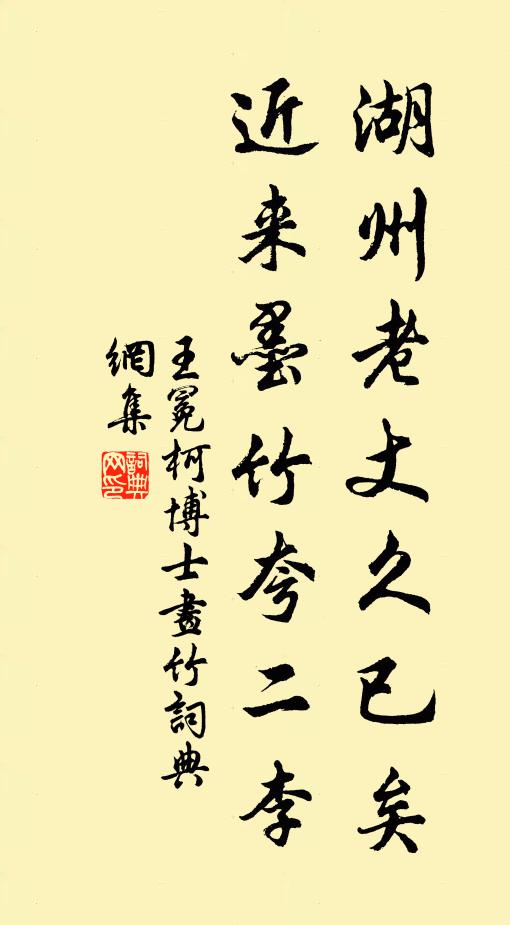 湖州老丈久已矣
近来墨竹夸二李
王冕柯博士畫竹詞典
網集
詞典網印